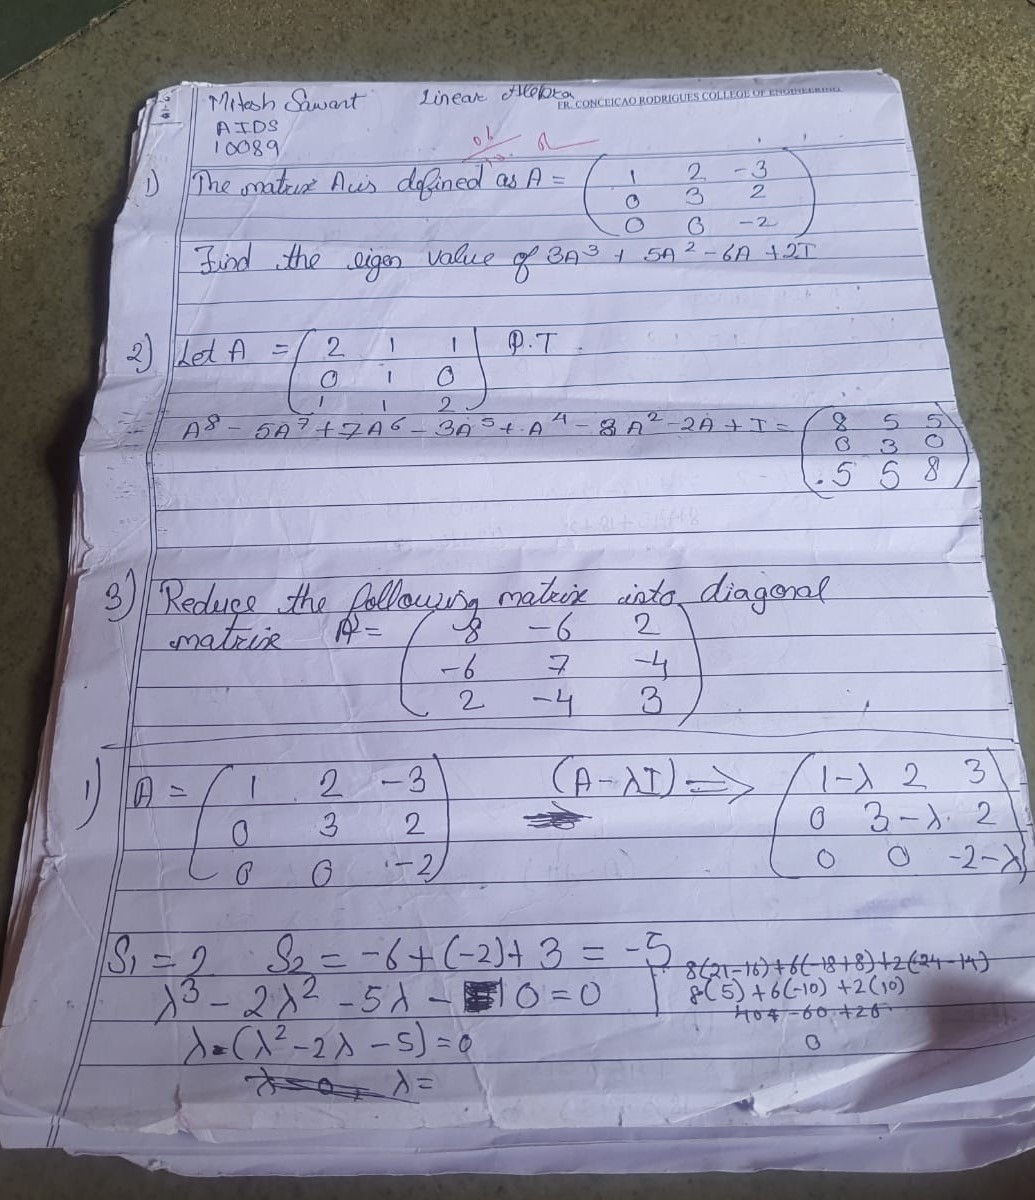 Mitesh Sawant Linear Alebra FR. CONCEICAO RODRIGUES COLLEGE OF ENGINEERING
AIDS
10089
1) The matrix A is defined as A = ( 1 2 -3
0 3 2
0 0 -2 )
Find the eigen value of 3A³ + 5A² - 6A + 2I
2) Let A = ( 2 1 1 P.T
0 1 0
1 1 2 )
A⁸ - 5A⁷ + 7A⁶ - 3A⁵ + A⁴ - 8A² - 2A + I = ( 8 5 5
0 3 0
5 5 8 )
3) Reduce the following matrix into diagonal
matrix A = ( 8 -6 2
-6 7 -4
2 -4 3 )
1) A = ( 1 2 -3 (A-λI) ⇒ ( 1-λ 2 3
0 3 2 0 3-λ 2
0 0 -2 ) 0 0 -2-λ )
S₁ = 2 S₂ = -6+(-2)+3 = -5
λ³ - 2λ² - 5λ - 0 = 0
λ (λ² - 2λ - 5) = 0
λ=0, λ=
8(21-16)+6(-18+8)+2(24-14)
8(5)+6(-10)+2(10)
40 -60 +20
0